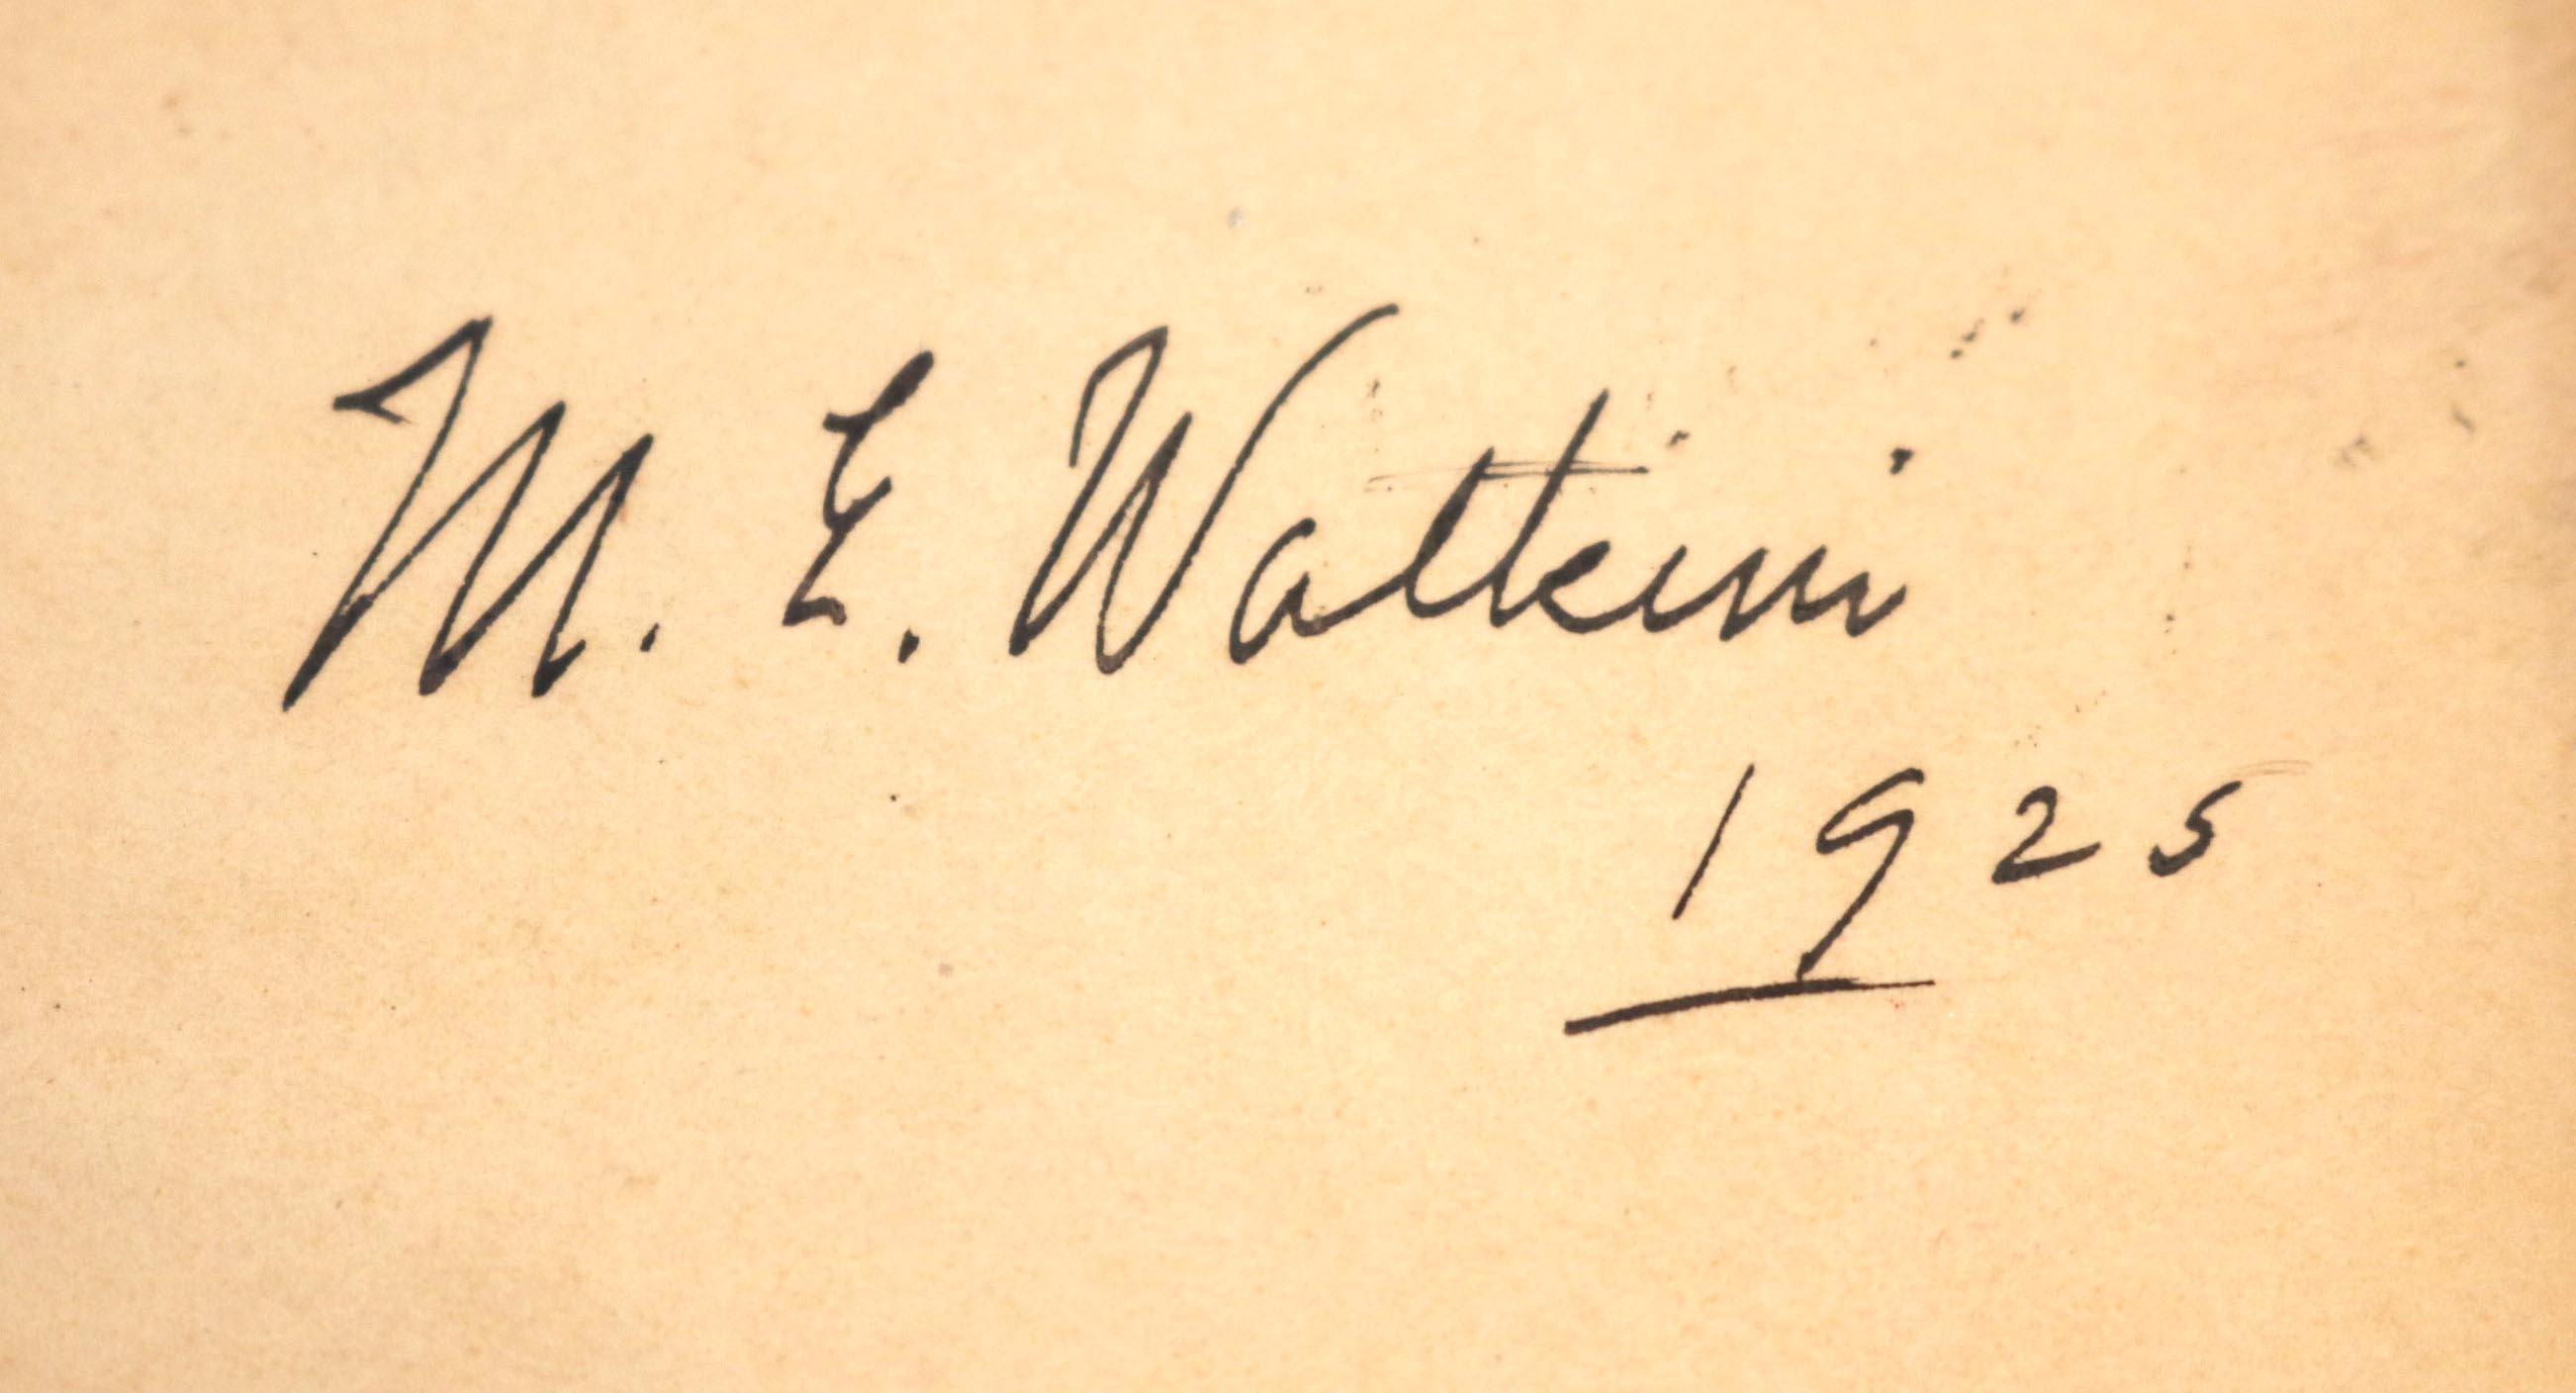 M. E. Watkins
1925